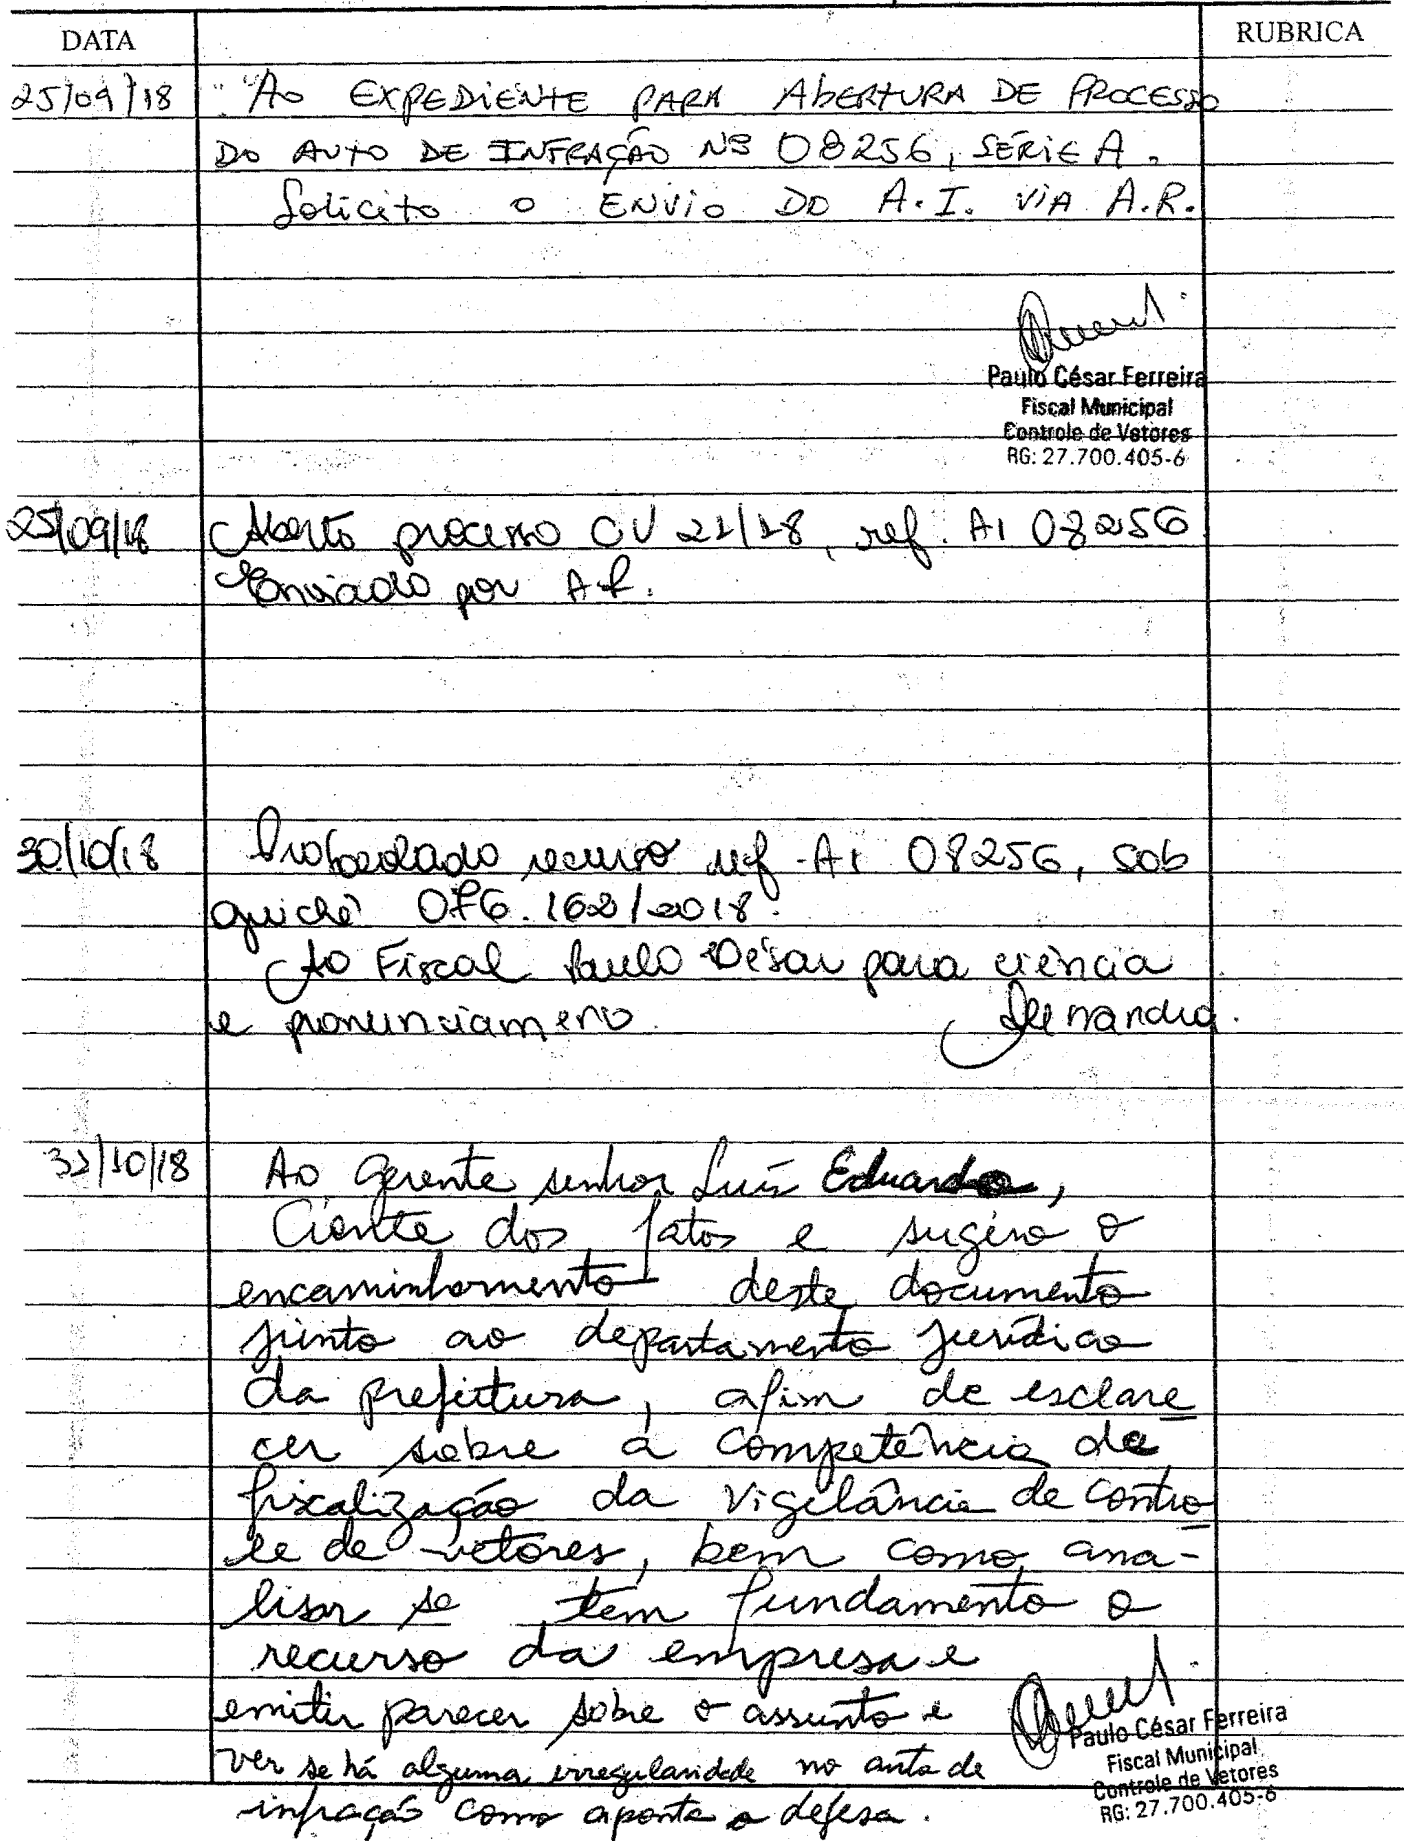 DATA
RUBRICA
25/09/18 Ao EXPEDIENTE PARA ABERTURA DE PROCESSO
DO AUTO DE INFRAÇÃO Nº 08256, SÉRIE A.
Solicito o ENVIO DO A.I. VIA A.R.
Paulo César Ferreira
Fiscal Municipal
Controle de Vetores
RG: 27.700.405-6
25/09/18 Aberto processo CV 21/18, ref. AI 08256
Enviado por AR.
30/10/18 Protocolado recurso ref. AI 08256, sob
guichê 076.162/2018.
Ao Fiscal Paulo César para ciência
e pronunciameno.
31/10/18 Ao gerente senhor Luís Eduardo,
Ciente dos fatos e sugiro o
encaminhamento deste documento
junto ao departamento jurídico
da prefeitura, afim de esclare
cer sobre a competência de
fiscalização da Vigilância de contro
le de vetores, bem como ana-
lisar se tem fundamento o
recurso da empresa e
emitir parecer sobre o assunto e
ver se há alguma irregularidade no auto de
infração como aponta a defesa.
Paulo César Ferreira
Fiscal Municipal
Controle de Vetores
RG: 27.700.405-6